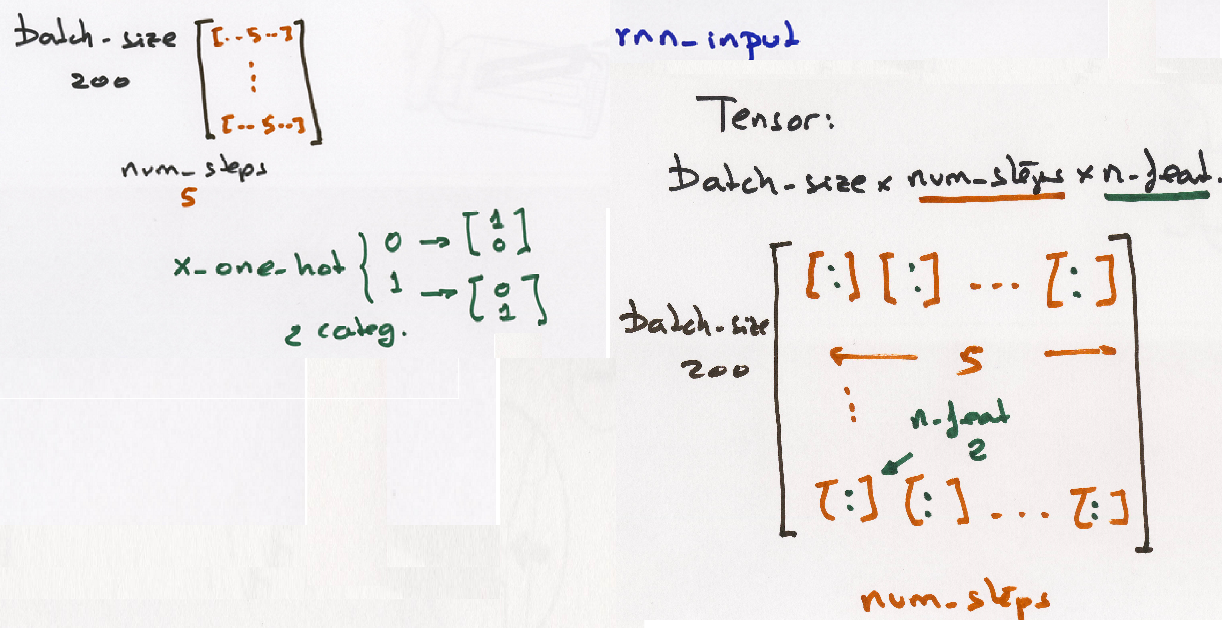 batch-size [[..5..]
200
[..5..]]
num_steps
5
x_one_hot { 0 → [1 0]
1 → [0 1]
2 categ.
rnn_input
Tensor:
batch-size x num_steps x n-feat.
[:] [:] ... [:]
batch-size
200
← 5 →
n-feat
2
[:] [:] ... [:]
num_steps